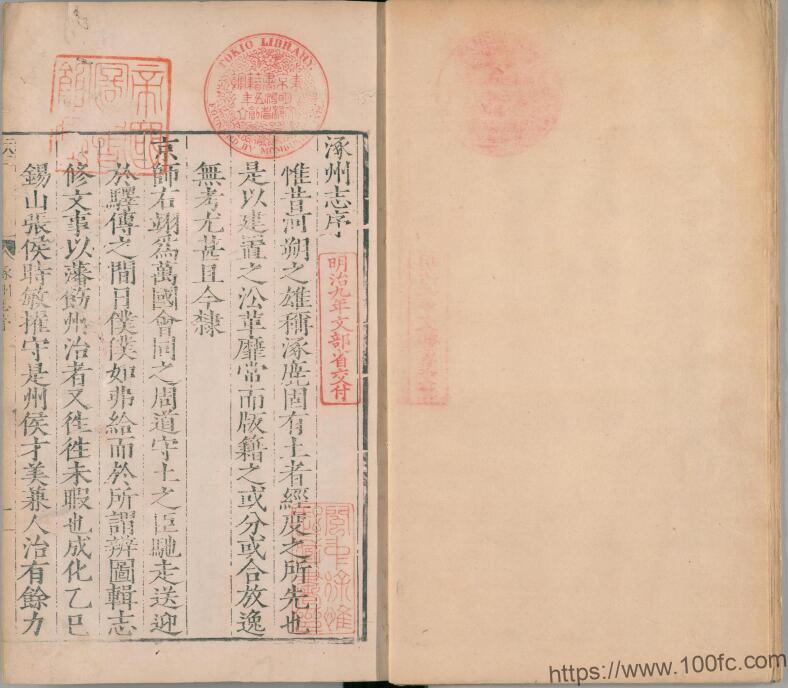 涿州志序
惟昔河朔之雄稱涿鹿固有土者經度之所先也
是以建置之㳂革靡常而版籍之或分或合放逸
無考尤甚且今隸
京師右翊爲萬國會同之周道守土之臣馳走送迎
於驛傳之間日僕僕如弗給而於所謂辨圖輯志
修文事以藩飭州治者又徃徃未暇也成化乙巳
錫山張侯時敏擢守是州侯才美兼人治有餘力
明治九年文部省交付
TOKIO LIBRARY.
https://www.100fc.com